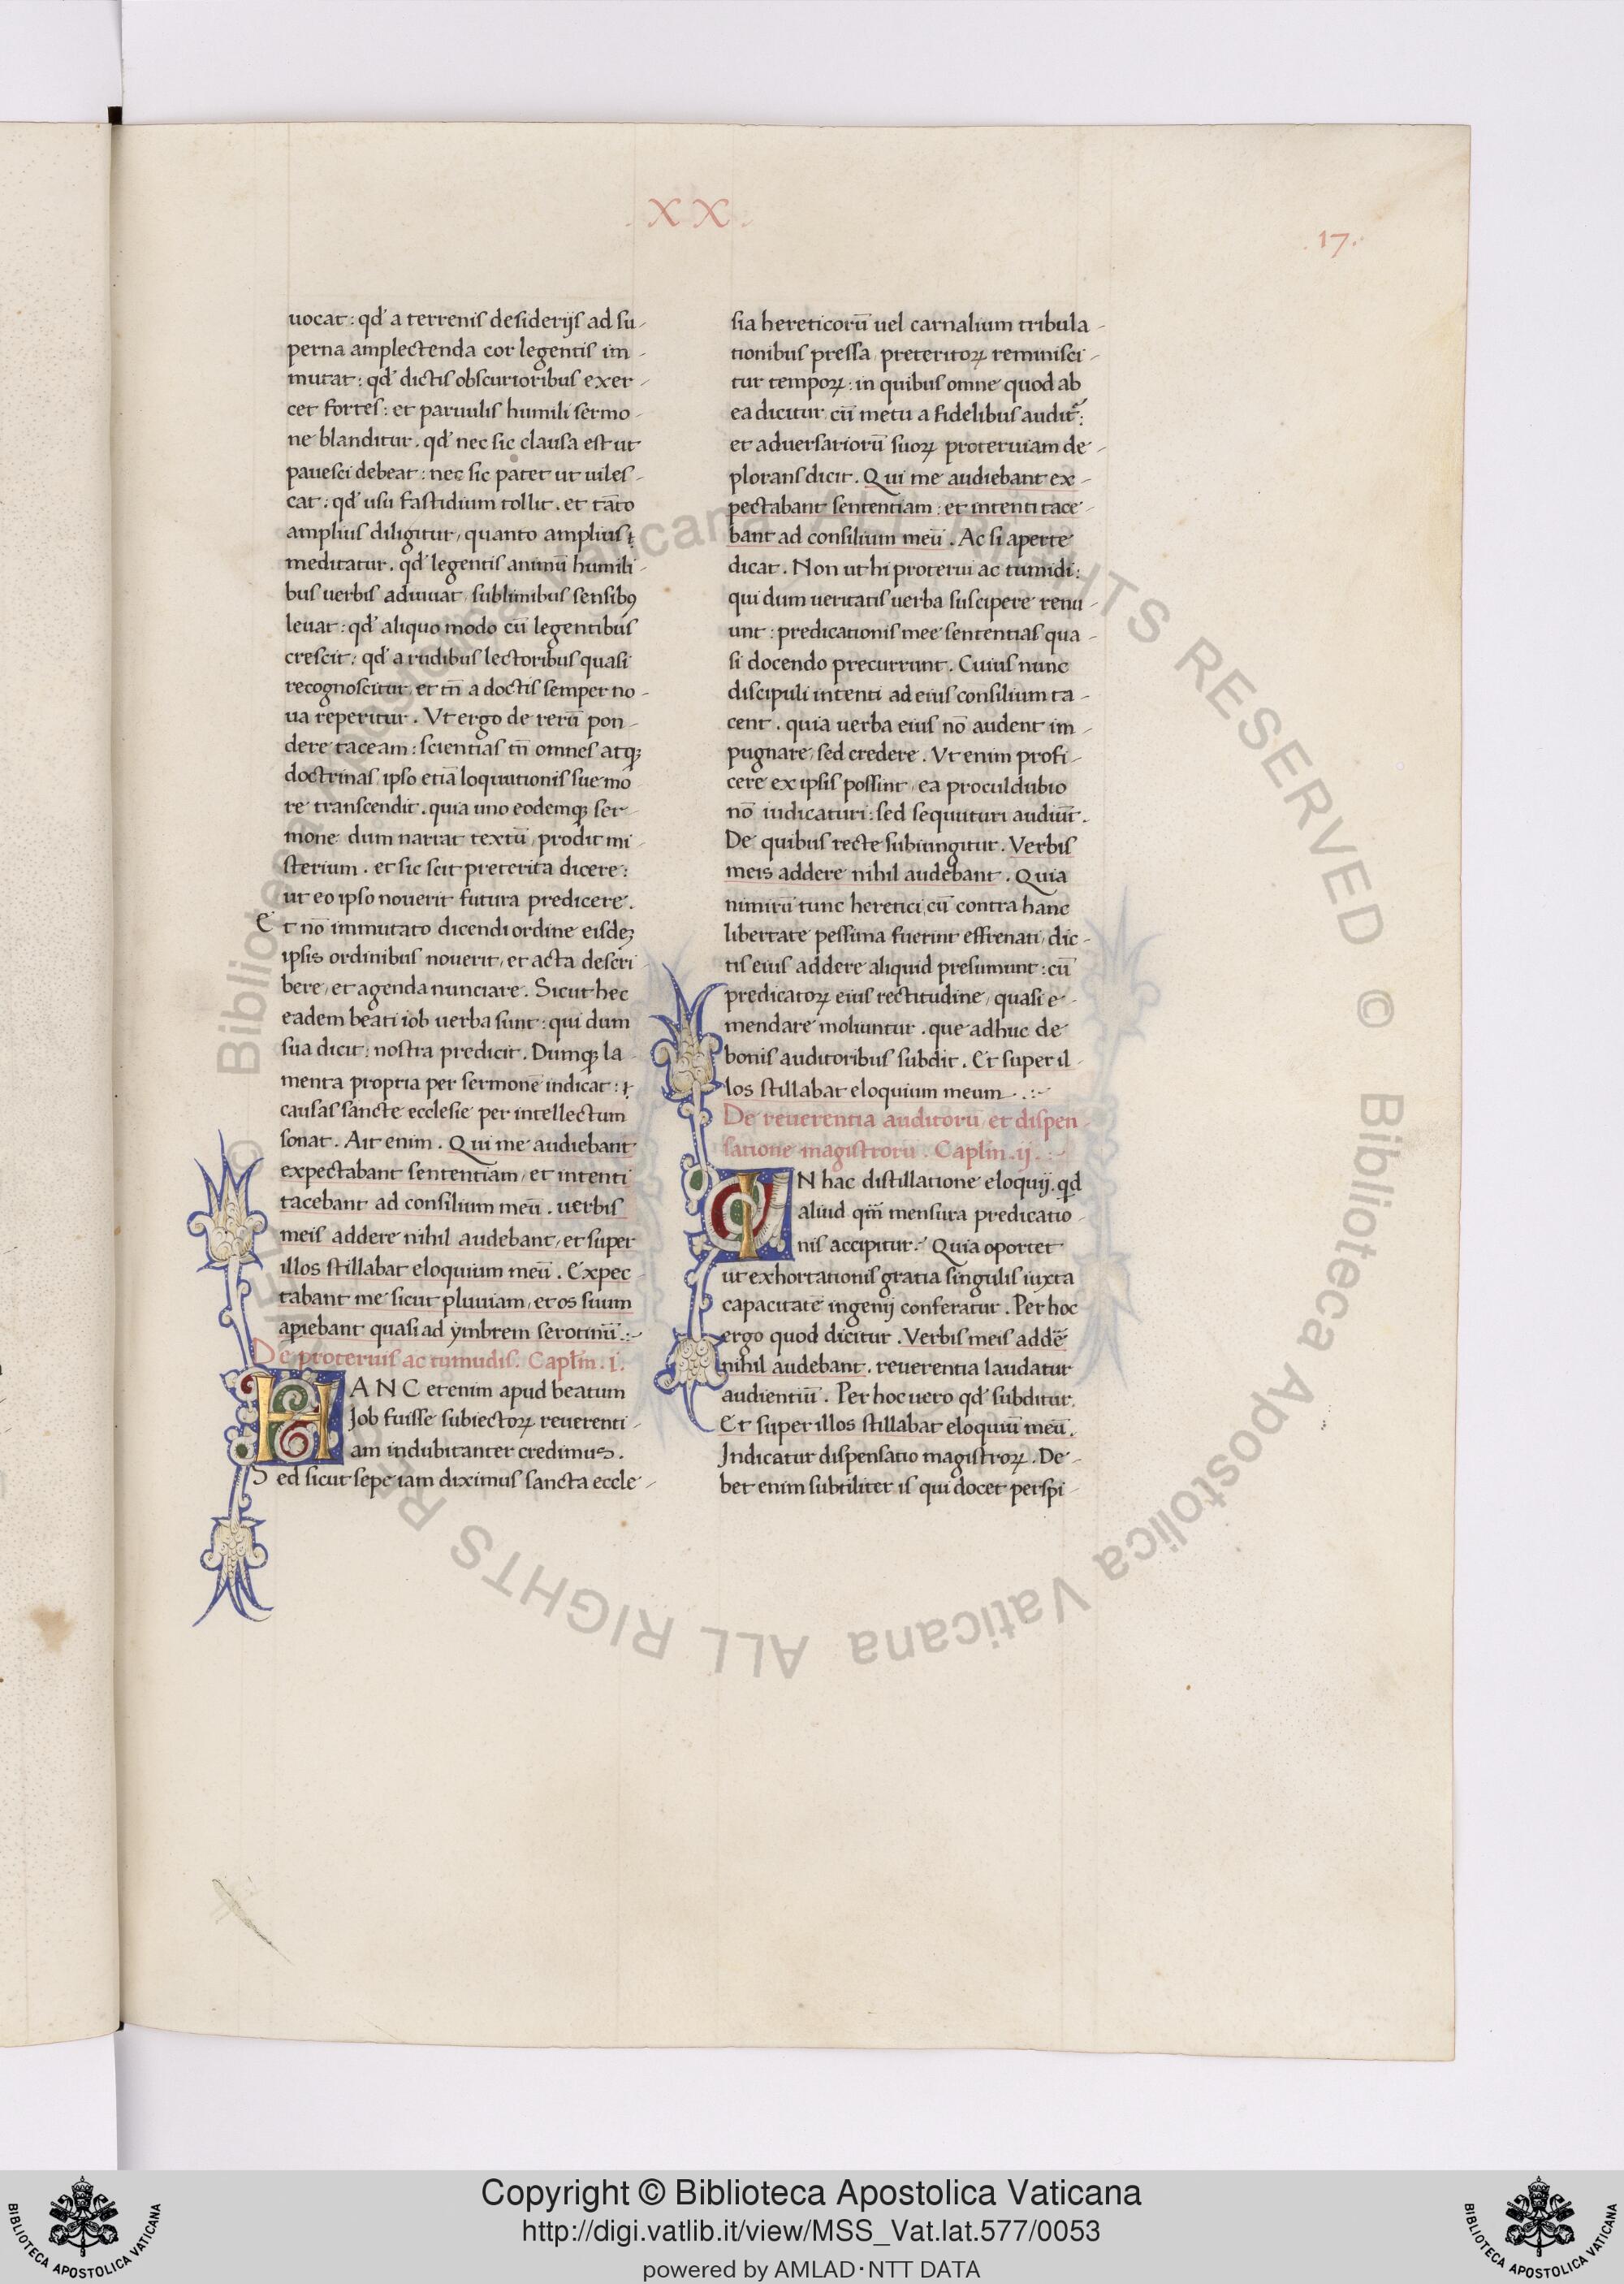 . XX .
. 17 .
uocat : qđ a terrenis desiderijs ad su-
perna amplectenda cor legentis im-
mutat : qđ dictis obscurioribus exer-
cet fortes : et paruulis humili sermo-
ne blanditur . qđ nec sic clausa est ut
pauesci debeat : nec sic patet ut uiles-
cat : qđ usu fastidium tollit . et tāto
amplius diligitur , quanto amplius
meditatur . qđ legentis animū humili-
bus uerbis adiuuat , sublimibus sensibꝰ
leuat : qđ aliquo modo cū legentibus
crescit : qđ a rudibus lectoribus quasi
recognoscitur , et tñ a doctis semper no-
ua reperitur . Vt ergo de rerū pon-
dere taceam : scientias tñ omnes atqꝫ
doctrinas , ipso etiā loquutionis sue mo
re transcendit . quia uno eodemqꝫ ser-
mone dum narrat textū , prodit mi-
sterium . et sic scit preterita dicere :
ut eo ipso nouerit futura predicere .
Et nō immutato dicendi ordine eisdeꝫ
ipsis ordinibus nouerit , et acta descri-
bere , et agenda nunciare . Sicut hec
eadem beati iob uerba sunt : qui dum
sua dicit : nostra predicit . Dumqꝫ la-
menta propria per sermonē indicat :
causas sancte ecclesie per intellectum
sonat . Ait enim . Qui me audiebant
expectabant sententiam , et intenti
tacebant ad consilium meū . uerbis
meis addere nihil audebant , et super
illos stillabat eloquium meū . Expec-
tabant me sicut pluuiam , et os suum
apiebant quasi ad ymbrem serotinū .:-
De proteruis ac tumudis . Capłm . i .
HANC etenim apud beatum
Job fuisse subiectoꝝ reuerenti-
am indubitanter credimus .
Sed sicut sepe iam diximus sancta eccle-
sia hereticorū uel carnalium tribula-
tionibus pressa , preteritoꝝ reminisci-
tur tempoꝝ : in quibus omne quod ab
ea dicitur , cū metu a fidelibus audit᷑ :
et aduersariorū suoꝝ proteruiam de-
plorans dicit . Qui me audiebant ex-
pectabant sententiam : et intenti tace
bant ad consilium meū . Ac si aperte
dicat . Non ut hi proterui ac tumidi :
qui dum ueritatis uerba suscipere renu-
unt : predicationis mee sententias qua-
si docendo precurrunt . Cuius nunc
discipuli intenti ad eius consilium ta-
cent . quia uerba eius nō audent im-
pugnare , sed credere . Vt enim profi-
cere ex ipsis possint , ea proculdubio
nō iudicaturi : sed sequuturi audiūt .
De quibus recte subiungitur . Verbis
meis addere nihil audebant . Quia
nimirū tunc heretici , cū contra hanc
libertate pessima fuerint effrenati , dic-
tis eius addere aliquid presumunt : cū
predicatoꝝ eius rectitudine , quasi e-
mendare moliuntur . que adhuc de
bonis auditoribus subdit . Et super il-
los stillabat eloquium meum . .:-
De reuerentia auditorū et dispen-
satione magistrorū . Capłm . ij . :-
IN hac distillatione eloquij . qđ
aliud qm̄ mensura predicatio-
nis accipitur . Quia oportet
ut exhortationis gratia singulis iuxta
capacitatē ingenij conferatur . Per hoc
ergo quod dicitur . Verbis meis addē
nihil audebant . reuerentia laudatur
audientiū . Per hoc uero qđ subditur .
Et super illos stillabat eloquiū meū .
Indicatur dispensatio magistroꝝ . De-
bet enim subtiliter is qui docet perspi-
© Biblioteca Apostolica Vaticana ALL RIGHTS RESERVED
© Biblioteca Apostolica Vaticana ALL RIGHTS RESERVED
Copyright © Biblioteca Apostolica Vaticana
http://digi.vatlib.it/view/MSS_Vat.lat.577/0053
powered by AMLAD·NTT DATA
BIBLIOTECA APOSTOLICA VATICANA
BIBLIOTECA APOSTOLICA VATICANA